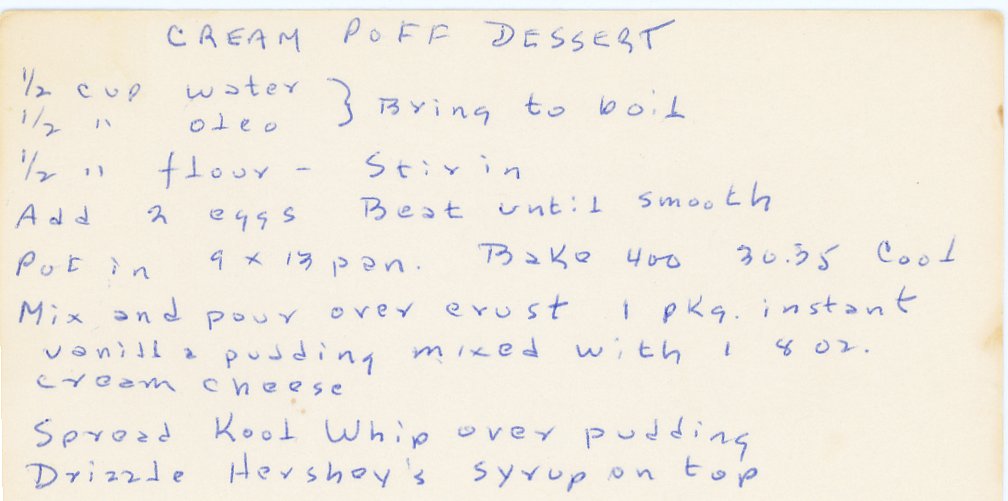 CREAM PUFF DESSERT
1/2 cup water } Bring to boil
1/2 " oleo
1/2 " flour - Stir in
Add 2 eggs Beat until smooth
Put in 9 x 13 pan. Bake 400 30-35 Cool
Mix and pour over crust 1 pkg. instant
vanilla pudding mixed with 1 8 oz.
cream cheese
Spread Kool Whip over pudding
Drizzle Hershey's syrup on top